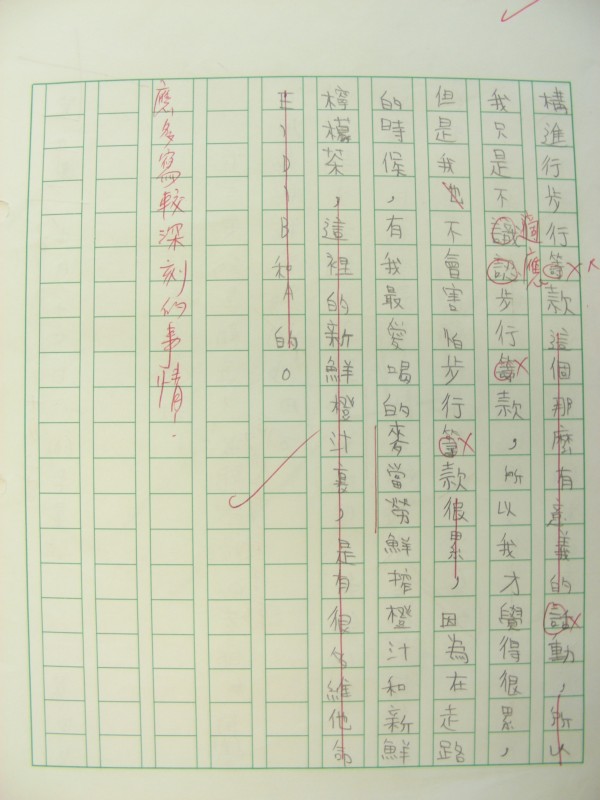 構進行步行籌款這個那麼有意義的話動,所以
我只是不識認步行籌款,所以我才覺得很累,
適應
但是我也不會害怕步行籌款很累,因為在走路
的時候,有我最愛喝的麥當勞鮮搾橙汁和新鮮
檸檬茶,這裡的新鮮橙汁裏,是有很多維他命
E、D、B和A的。
應多寫較深刻的事情.